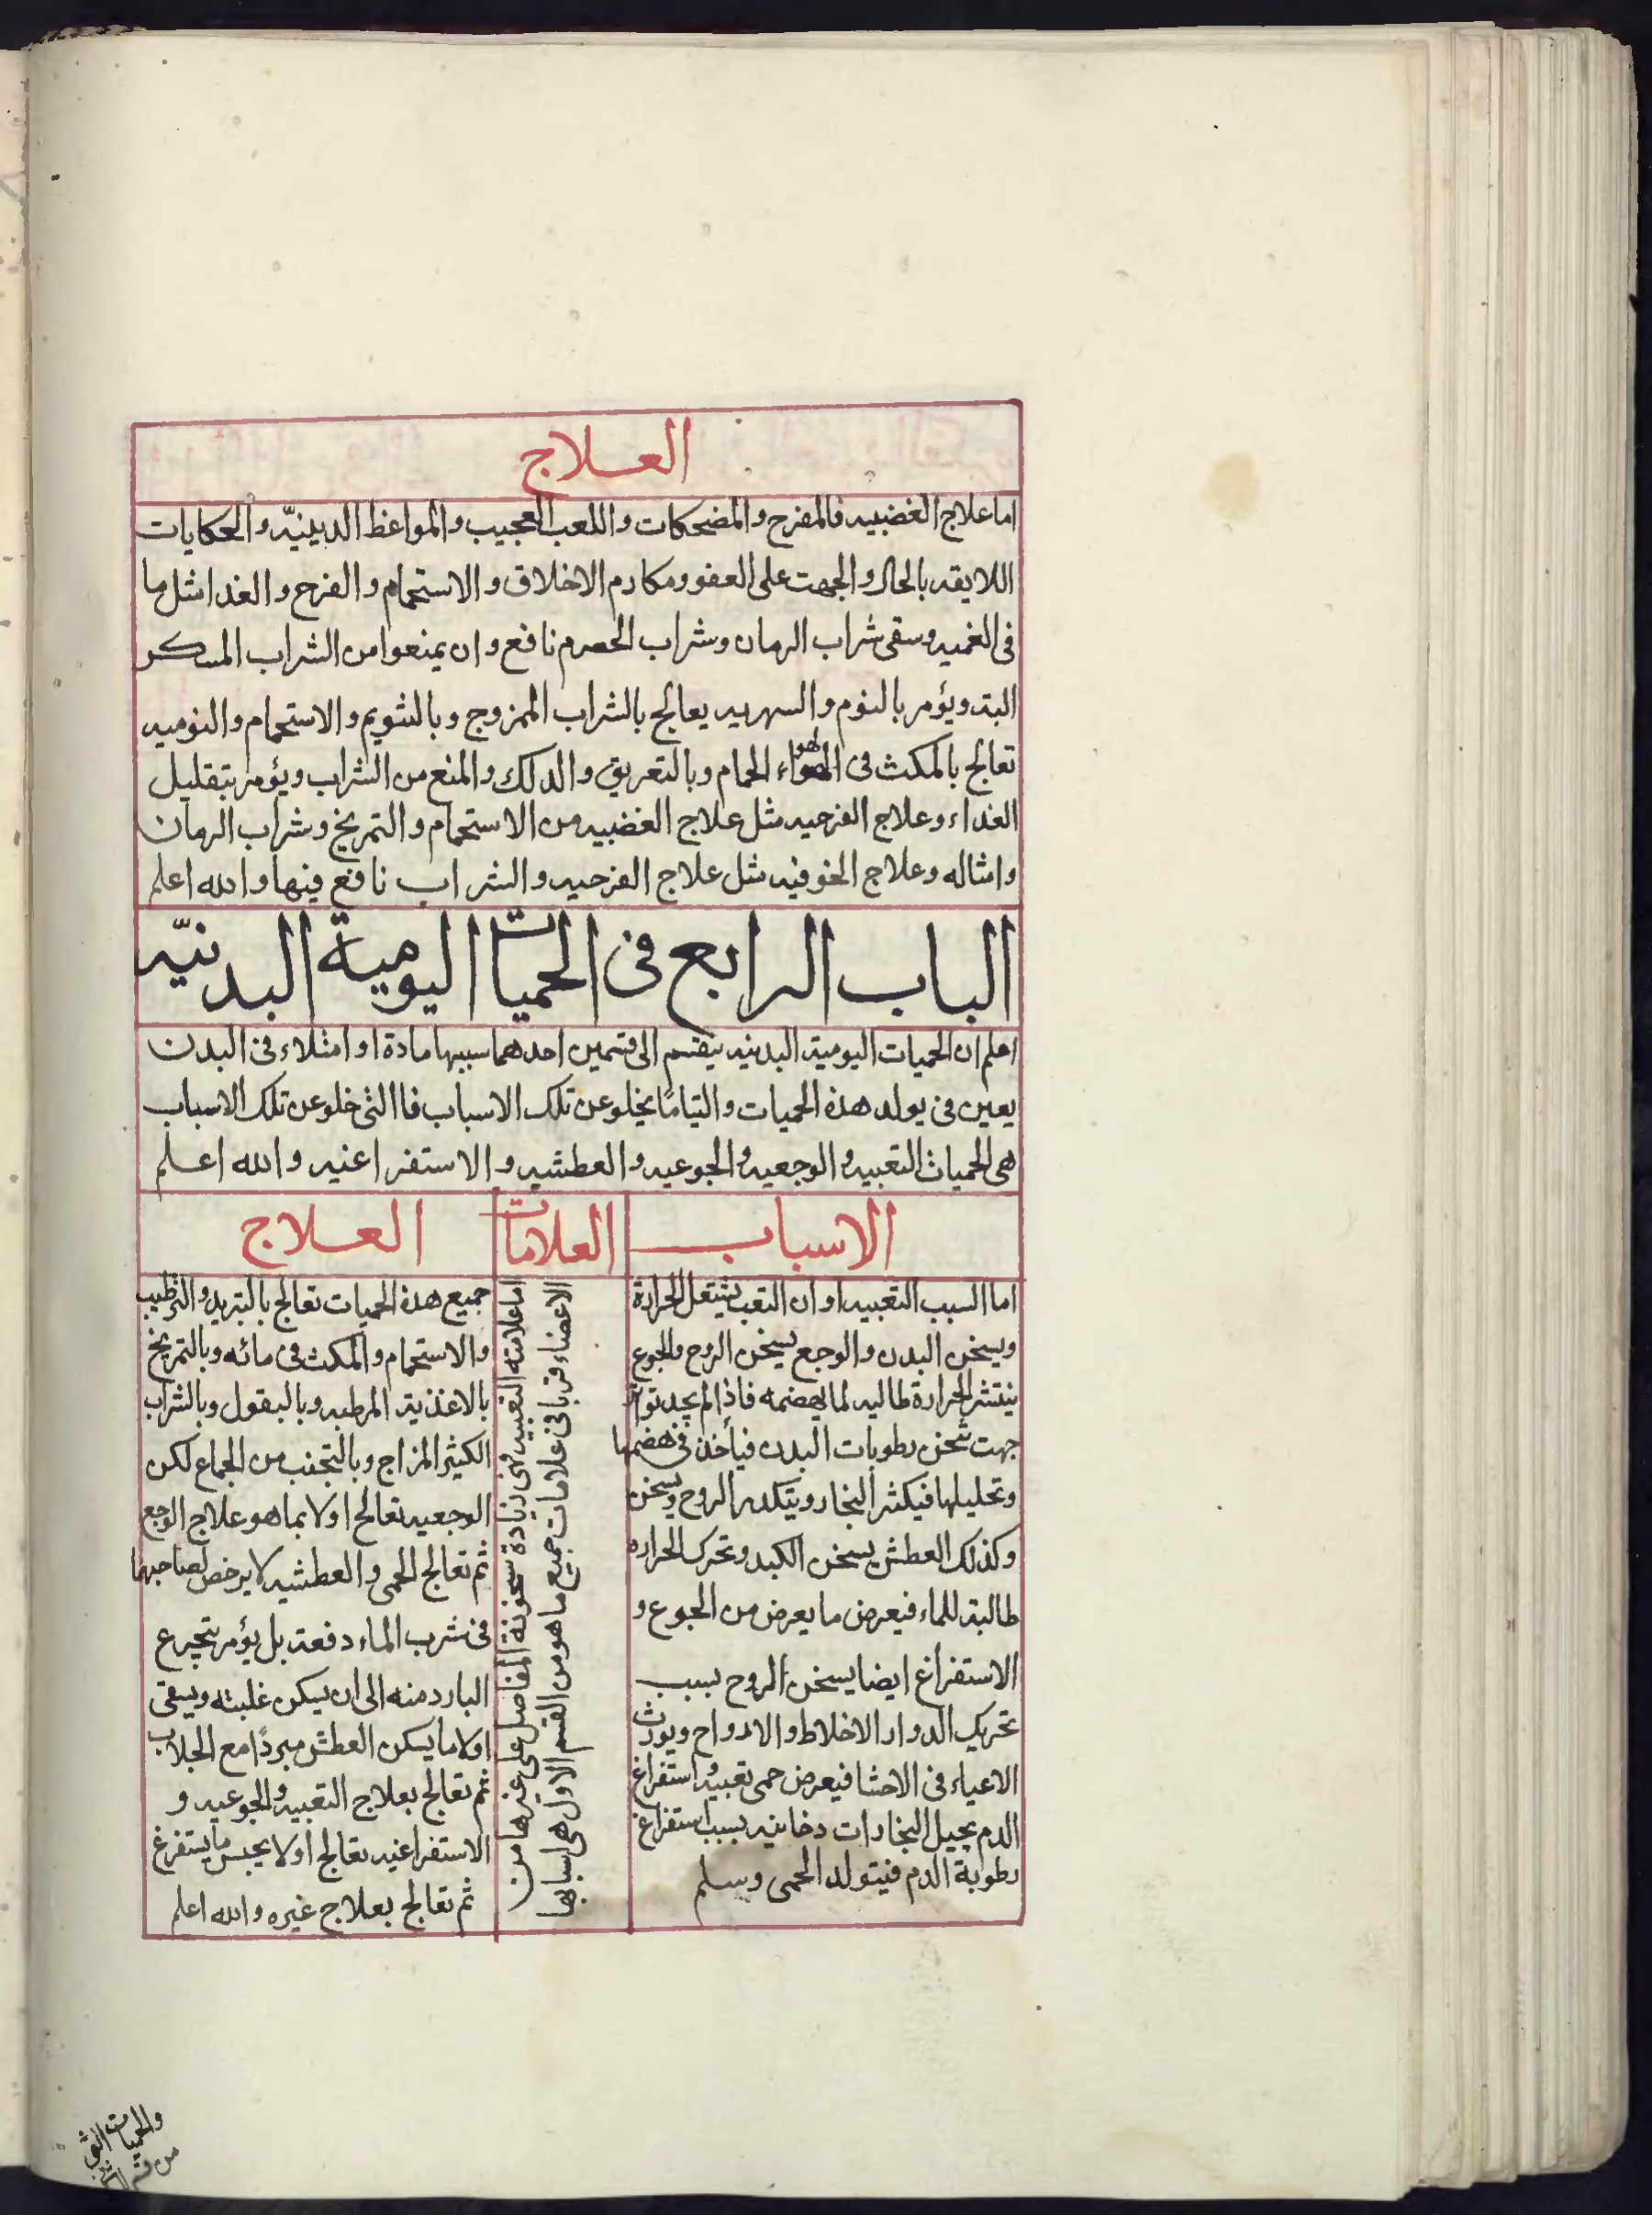 العلاج
اما علاج الغضبيه فالمفرح والمضحكات واللعب العجيب والمواعظ الدينيّه والحكايات
اللايقه بالحال والجهت على العفو ومكارم الاخلاق والاستحمام والفرح والغدا مثل ما
فى الغميه وسقى شراب الرمان وشراب الحصرم نافع وان يمنعوا من الشراب المسكر
البته ويؤمر بالنوم والسهريه يعالج بالشراب الممزوج وبالشويم والاستحمام والنوميه
تعالج بالمكث فى الهواء الحمام وبالتعريق والدلك والمنع من الشراب ويؤمر بتقليل
الغداء وعلاج الفرحيه مثل علاج الغضبيه من الاستحمام والتمريخ وشراب الرمان
وامثاله وعلاج الخوفيه مثل علاج الفرحيه والشراب نافع فيها والله اعلم
الباب الرابع فى الحميات اليومية البدنيّه
اعلم ان الحميات اليومية البدنيه ينقسم الى قسمين احدهما سببها مادة او امتلاء فى البدن
يعين فى يولد هذه الحميات والثيا ما يخلو عن تلك الاسباب فاالتى خلو عن تلك الاسباب
هى الحميات التعبيه والوجعيه والجوعيه والعطشيه والاستفراغيه والله اعلم
الاسباب
اما السبب التعبيه او ان التعب يشتعل الحرارة
ويسخن البدن والوجع يسخن الروح والجوع
ينتشر الحرارة طالبه لما يهضمه فاذا لم يجد توا
جهت تسخن رطوبات البدن فيأخذ فى هضمها
وتحليلها فيكثر البخار ويتكدر الروح ويسخن
وكذلك العطش يسخن الكبد وتحرك الحراره
طالبة للماء فيعرض ما يعرض من الجوع و
الاستفراغ ايضا يسخن الروح بسبب
تحريك الدوار الاخلاط والارواح ويورث
الاعياء فى الاحشا فيعرض حمى تعبيه واستفراغ
الدم يحيل البخارات دخانيه بسبب استفراغ
رطوبة الدم فيتولد الحمى وسلم
العلامات
اما علامته التعبيه فهى زيادة سخونة المفاصل على غيرها من
الاعضاء قربا فى علامات جميع ما هو من القسم الاول هى اسبابها
العلاج
جميع هذه الحميات تعالج بالتبريد والترطيب
والاستحمام والمكث فى مائه وبالتمريخ
بالاغذية المرطبه وبالبقول وبالشراب
الكثير المزاج وبالتجنب من الجماع لكن
الوجعيه تعالج اولا بما هو علاج الوجع
ثم تعالج الحمى والعطشيه لا يرخص لصاحبها
فى شرب الماء دفعة بل يؤمر بتجرع
البارد منه الى ان يسكن غلبته ويبقى
اولا ما يسكن العطش مبردًا مع الجلاب
ثم تعالج بعلاج التعبيه والجوعيه و
الاستفراغيه تعالج اولا يحبس ما يستفرغ
ثم تعالج بعلاج غيره والله اعلم
والحميات التى
من قسم